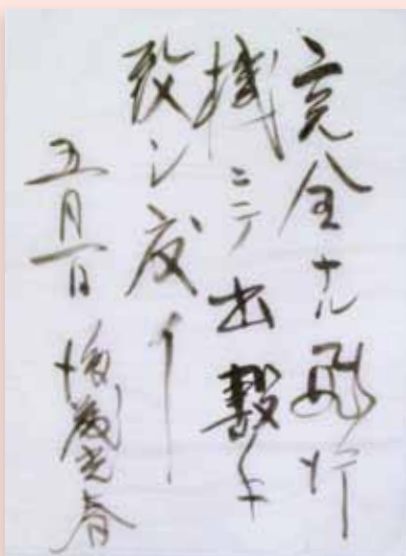 完全ナル飛行
機ニテ出撃
致シ度イ
五月一日 後藤光春